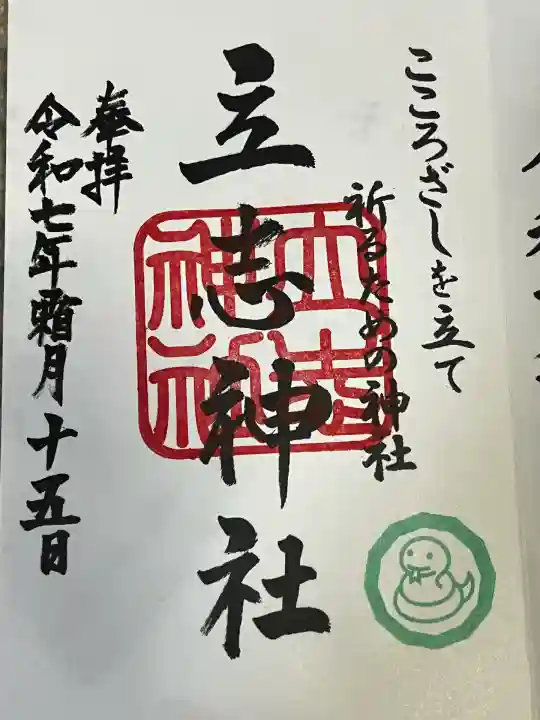 こころざしを立て
祈るための神社
立志神社
奉拝
令和七年霜月十五日